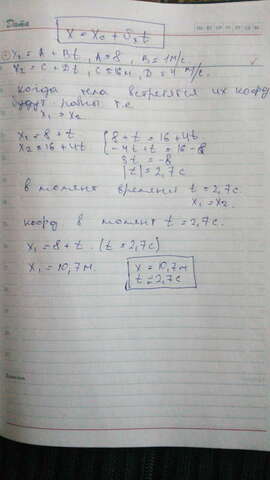 Дата
X = X₀ + υₓt
① X₁ = A + Bt, A=8, B=1м/с
X₂ = C + Dt, C=16м, D=4 м/с.
Когда тела встретятся их коорд
будут равны т.е
x₁ = x₂
X₁ = 8 + t { 8 + t = 16 + 4t
X₂ = 16 + 4t -4t + t = 16 - 8
3t = -8
|t| = 2,7 с
в момент времени t = 2,7 с.
X₁ = X₂.
коорд в момент t = 2,7 с.
X₁ = 8 + t. (t = 2,7 с)
X₁ = 10,7 м.
X = 10,7 м
t = 2,7 с